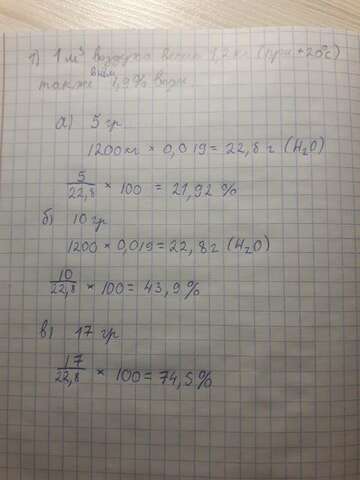 1) 1 м³ воздуха весит 1,2 кг (при +20°C)
также в нём 1,9% воды
а) 5 гр
1200кг × 0,019 = 22,8 г (H₂O)
5/22,8 × 100 = 21,92 %
б) 10 гр
1200 × 0,019 = 22,8 г (H₂O)
10/22,8 × 100 = 43,9 %
в) 17 гр
17/22,8 × 100 = 74,5 %